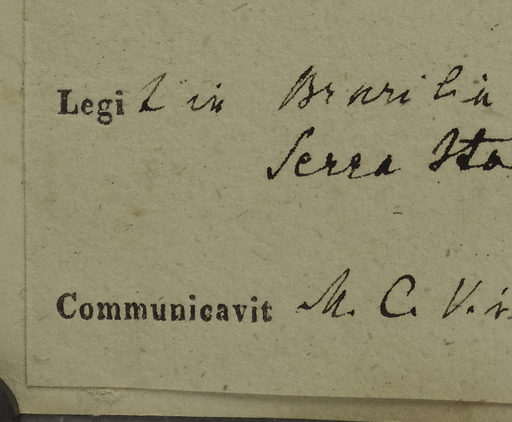 Legi t in Brasilia
Serra Sta
Communicavit M. C. V. i